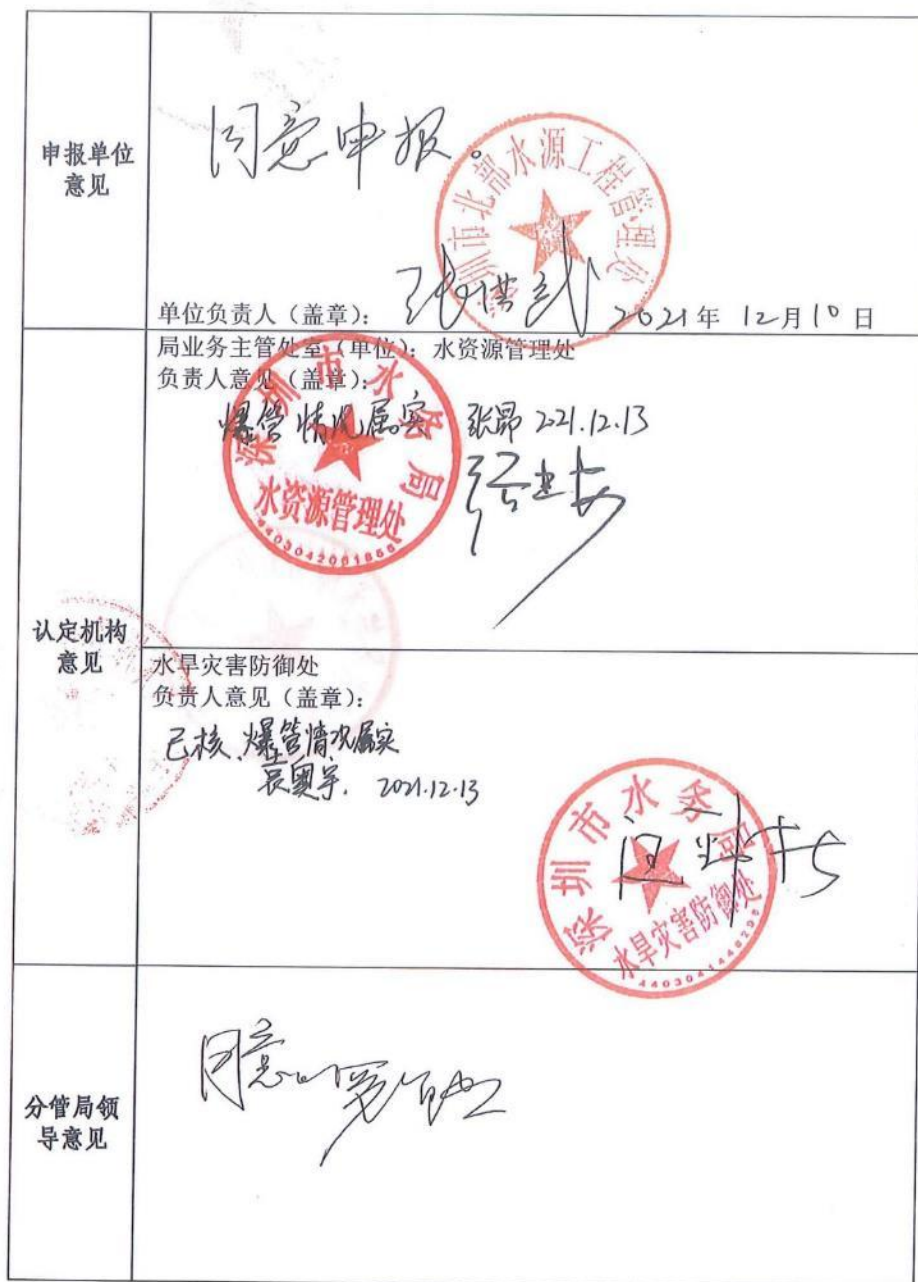 申报单位
意见
同意申报。
深圳市北部水源工程管理处
单位负责人（盖章）：
2021年 12月10日
局业务主管处室（单位）：水资源管理处
负责人意见（盖章）：
爆管情况属实 张昂 2021.12.13
深圳市水务局
水资源管理处
认定机构
意见
水旱灾害防御处
负责人意见（盖章）：
已核，爆管情况属实
袁奥宇. 2021.12.13
深圳市水务局
水旱灾害防御处
分管局领
导意见
同意